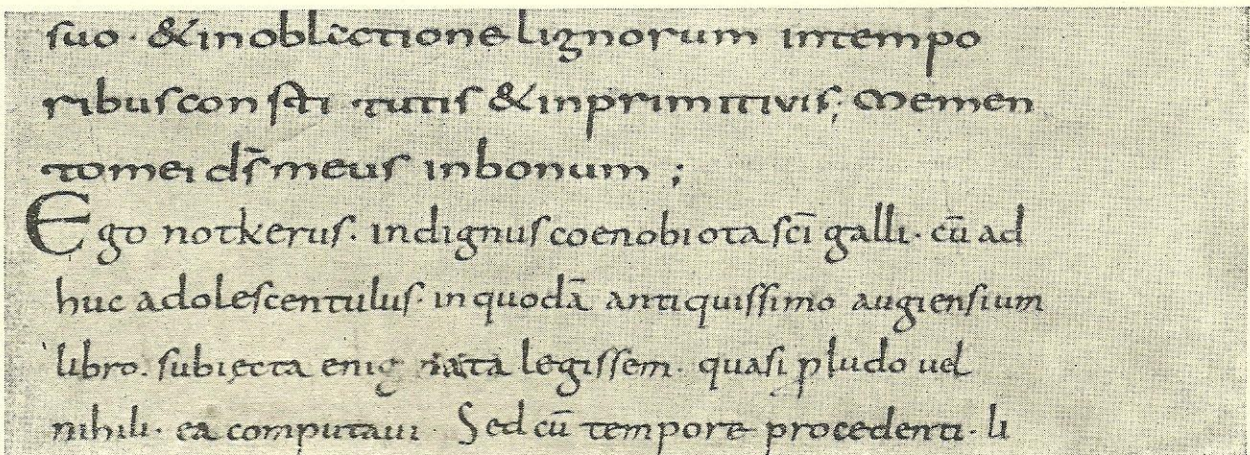 suo · & inoblectione lignorum intempo
ribus consti tutis & inprimitivis; Memen
tomei ds̄ meus inbonum ;
Ego notkerus · indignus coenobiota sc̄i galli · cū ad
huc adolescentulus · inquodā antiquissimo augiensium
libro · subiecta enig mata legissem · quasi pludo uel
nihili · ea computaui · Sed cū tempore procedenti · li